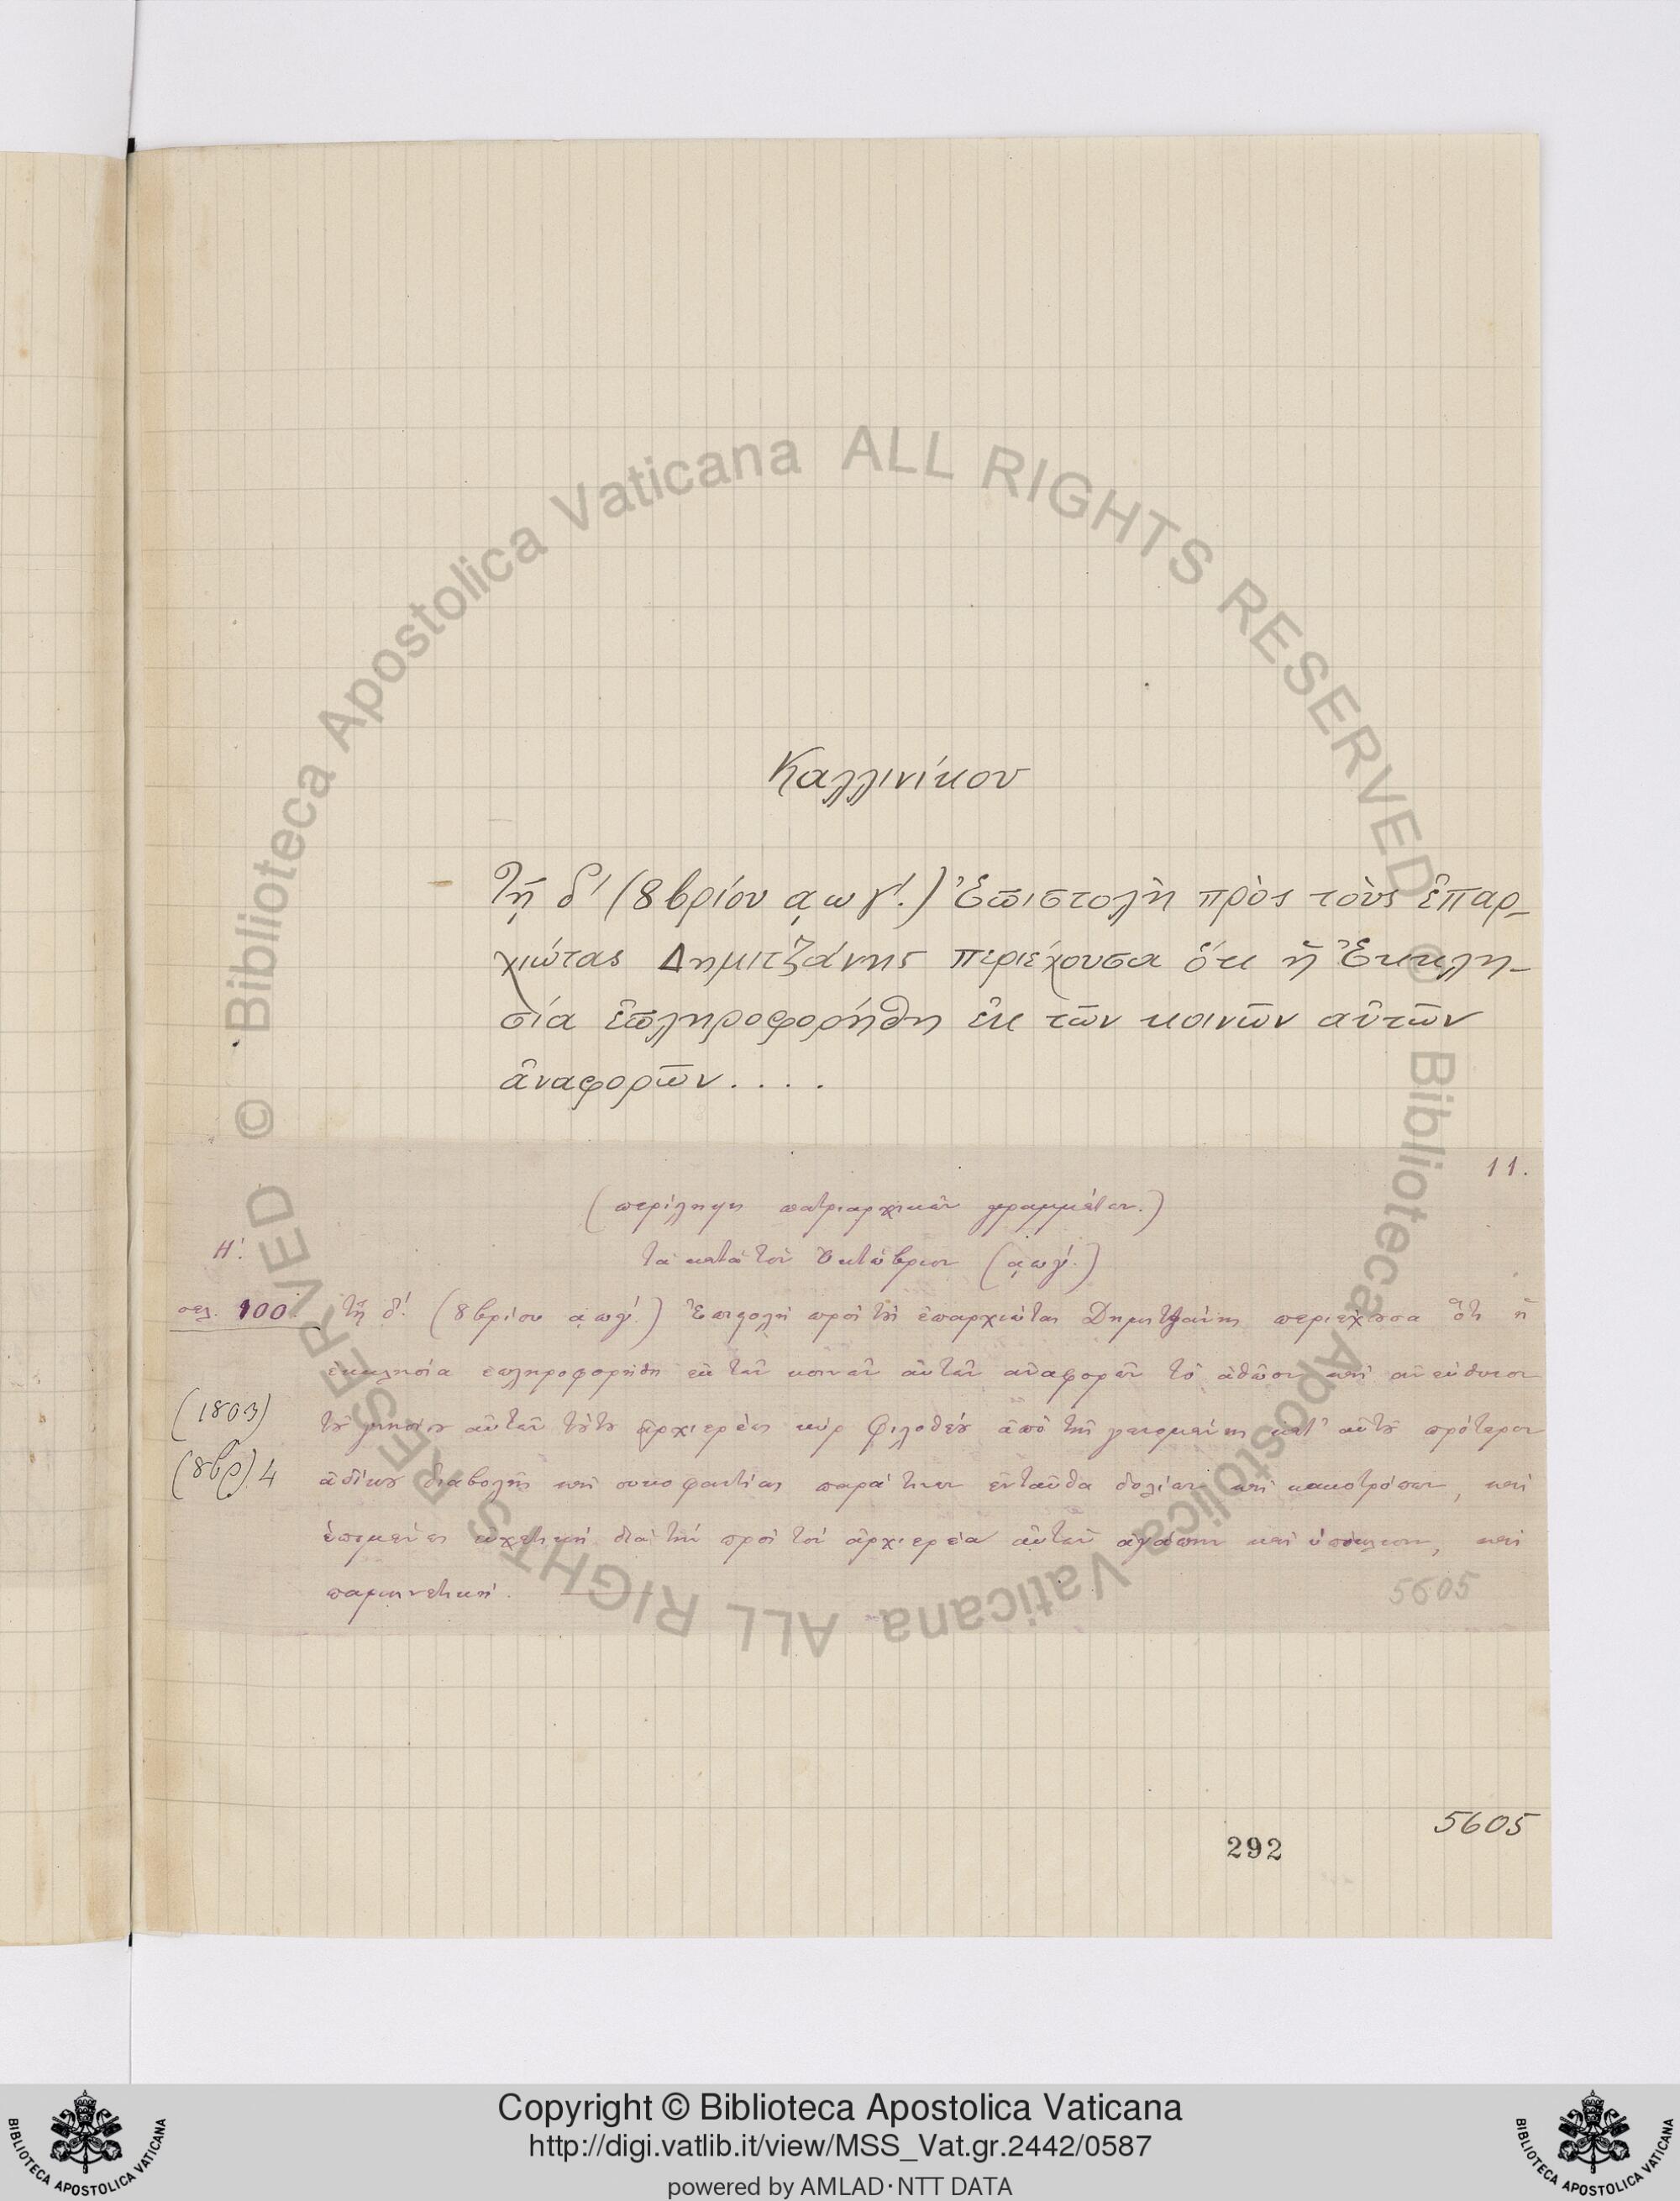 Καλλινίκου
Τῇ δ' (8βρίου αωγ'.) Ἐπιστολὴ πρὸς τοὺς ἐπαρ-
χιώτας Δημιτζάνης περιέχουσα ὅτι ἡ Ἐκκλη-
σία ἐπληροφορήθη ἐκ τῶν κοινῶν αὐτῶν
ἀναφορῶν....
11.
(περίληψη πατριαρχικῶν γραμμάτων.)
Η'.
τὰ κατὰ τὸν Ὀκτώβριον (αωγ'.)
σελ. 100 τῇ δ'. (8βρίου αωγ'.) Ἐπιστολὴ πρὸς τοὺς ἐπαρχιώτας Δημητζάνης περιέχουσα ὅτι ἡ
ἐκκλησία ἐπληροφορήθη ἐκ τῶν κοινῶν αὐτῶν ἀναφορῶν τὸ ἀθῶον καὶ ἀνεύθυνον
(1803)
τοῦ γνησίου αὐτῶν τούτου ἀρχιερέως κὺρ Φιλοθέου ἀπὸ τῆς γενομένης κατ' αὐτοῦ πρότερον
(8βρ) 4
ἀδίκου διαβολῆς καὶ συκοφαντίας παρά τινων ἐνταῦθα δολίων καὶ κακοτρόπων, καὶ
ἑπομένως εὐχετικὴ διὰ τὴν πρὸς τὸν ἀρχιερέα αὐτῶν ἀγάπην καὶ ὑπόκλισιν, καὶ
παραινετική.
5605
5605
292
© Biblioteca Apostolica Vaticana ALL RIGHTS RESERVED
© Biblioteca Apostolica Vaticana ALL RIGHTS RESERVED
Copyright © Biblioteca Apostolica Vaticana
http://digi.vatlib.it/view/MSS_Vat.gr.2442/0587
powered by AMLAD·NTT DATA
BIBLIOTECA APOSTOLICA VATICANA
BIBLIOTECA APOSTOLICA VATICANA